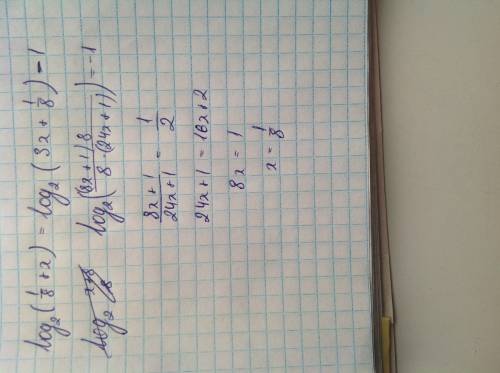 log₂(1/8 + x) = log₂(3x + 1/8) - 1
log₂((8x+1) 8 / 8·(24x+1)) = -1
8x+1 / 24x+1 = 1/2
24x+1 = 16x+2
8x = 1
x = 1/8